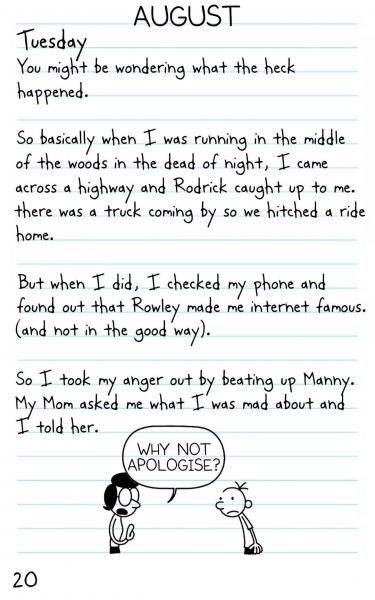 AUGUST
Tuesday
You might be wondering what the heck
happened.
So basically when I was running in the middle
of the woods in the dead of night, I came
across a highway and Rodrick caught up to me.
there was a truck coming by so we hitched a ride
home.
But when I did, I checked my phone and
found out that Rowley made me internet famous.
(and not in the good way).
So I took my anger out by beating up Manny.
My Mom asked me what I was mad about and
I told her.
WHY NOT
APOLOGISE?
20